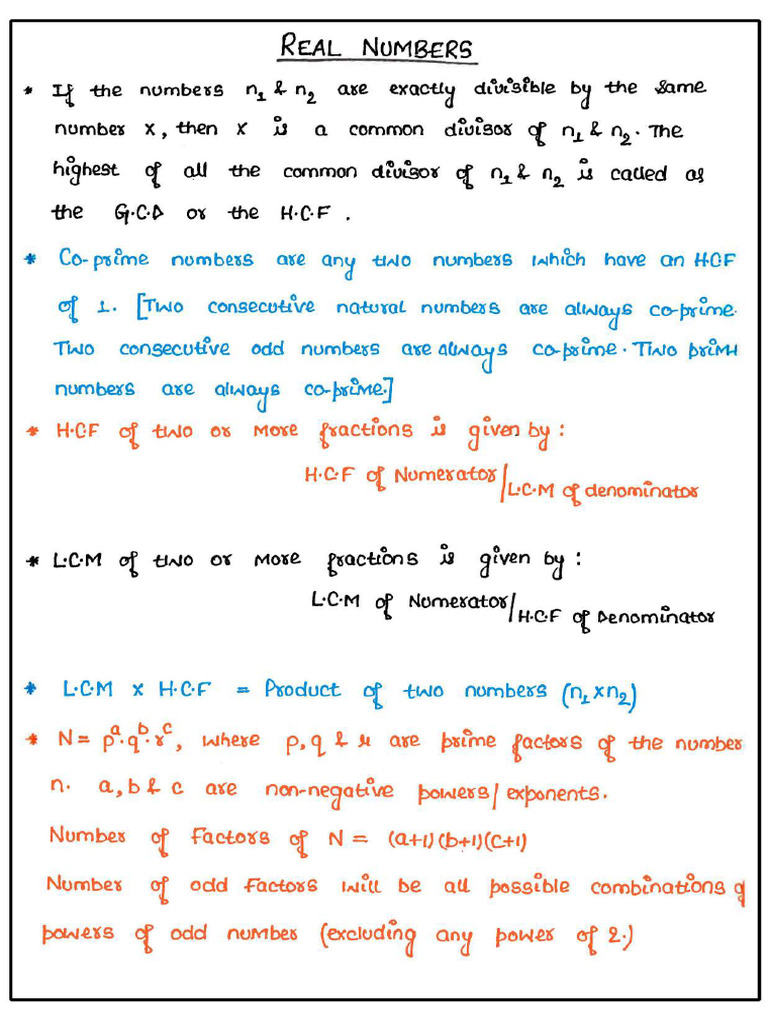 REAL NUMBERS
* If the numbers n₁ & n₂ are exactly divisible by the same
number x, then x is a common divisor of n₁ & n₂. The
highest of all the common divisor of n₁ & n₂ is called as
the G.C.D or the H.C.F.
* Co-prime numbers are any two numbers which have an HCF
of 1. [Two consecutive natural numbers are always co-prime.
Two consecutive odd numbers are always co-prime. Two prime
numbers are always co-prime.]
* H.C.F of two or more fractions is given by:
H.C.F of Numerator/L.C.M of denominator
* L.C.M of two or more fractions is given by:
L.C.M of Numerator/H.C.F of Denominator
* L.C.M x H.C.F = Product of two numbers (n₁ x n₂)
* N = pᵃ.qᵇ.rᶜ, where p, q & r are prime factors of the number
n. a, b & c are non-negative powers/exponents.
Number of Factors of N = (a+1)(b+1)(c+1)
Number of odd Factors will be all possible combinations of
powers of odd number (excluding any power of 2.)